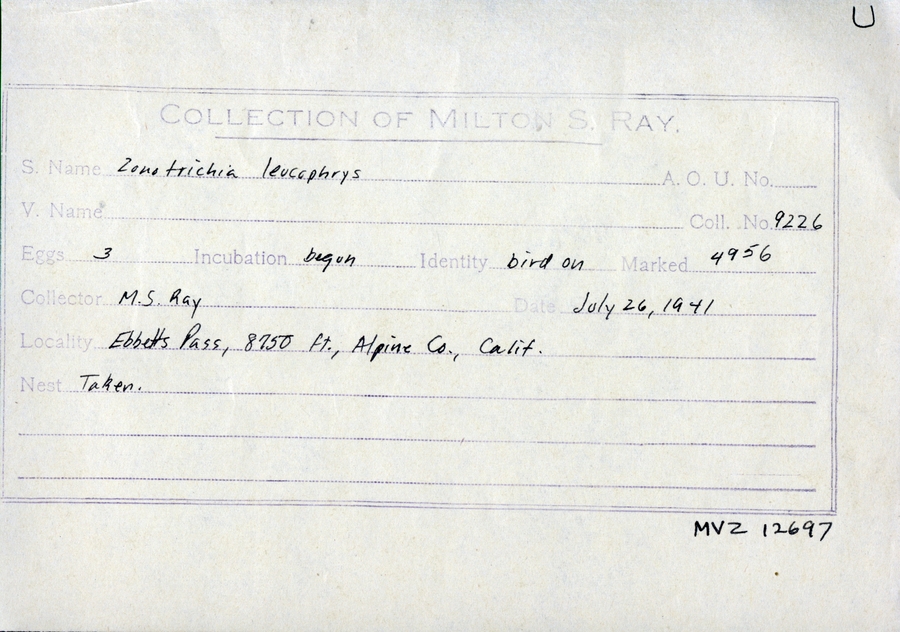 U
COLLECTION OF MILTON S. RAY.
S. Name Zonotrichia leucophrys A. O. U. No.
V. Name Coll. No. 9226
Eggs 3 Incubation begun Identity bird on Marked 4956
Collector M.S. Ray Date July 26, 1941
Locality Ebbetts Pass, 8750 ft., Alpine Co., Calif.
Nest Taken.
MVZ 12697